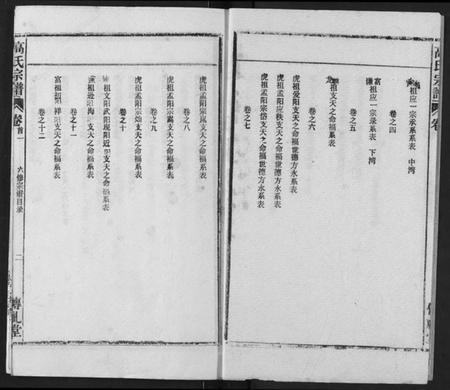 高氏宗譜
卷
祖應一宗承系表 中灣
卷之四
富
祖應一宗錄系表 下灣
卷之五
祖支天之命福系表
卷之六
虎祖受陽支天之命福世德方永系表
虎祖孟陽應秩支天之命福世德方永系表
虎祖孟陽宗岱支天之命福世德方永系表
卷之七
虎祖孟陽宗嵐支天之命福系表
卷之八
虎祖孟陽宗嵩支天之命福系表
卷之九
虎祖孟陽宗支天之命福系表
卷之十
祖文陽武陽現陽近支天之命福系表
祖遊陽海支天之命福系表
卷之十一
富祖祖祥支天之命福系表
卷之十二
高氏宗譜
卷首一
六修宗譜目录
二